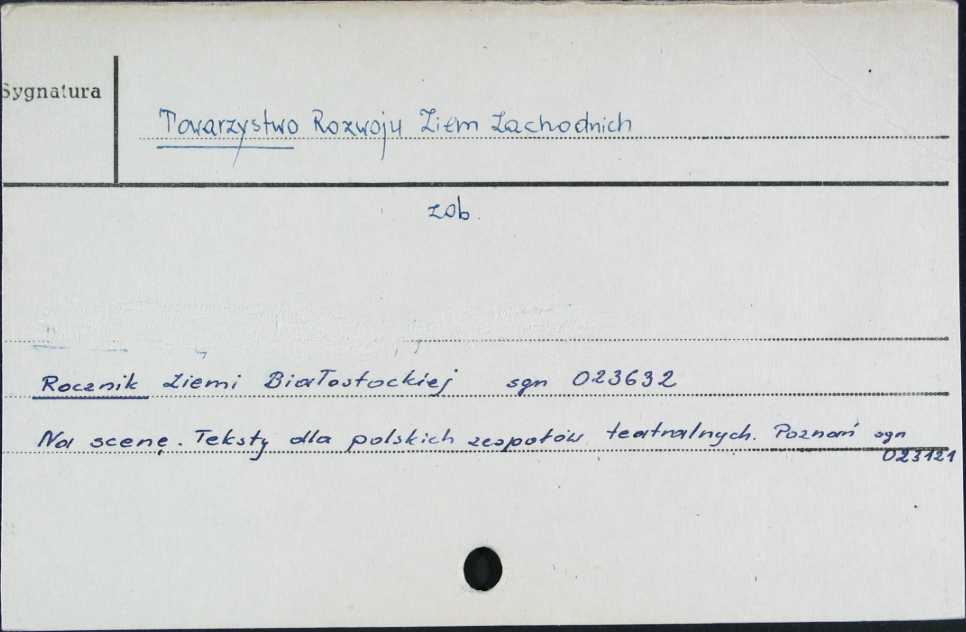 Sygnatura
Towarzystwo Rozwoju Ziem Zachodnich
zob.
Rocznik Ziemi Białostockiej sgn 023632
Na scenę. Teksty dla polskich zespołów teatralnych. Poznań sgn
023121